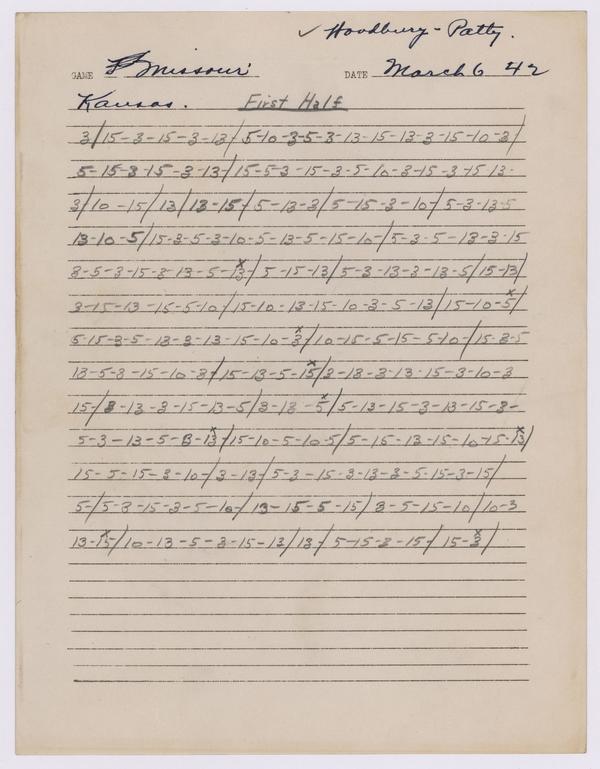 ✓ Woodbury - Patty.
GAME Missouri DATE March 6 42
Kansas. First Half
3/15-3-15-3-13/5-10-3-5-3-13-15-13-3-15-10-3/
5-15-3-15-3-13/15-5-3-15-3-5-10-3-15-3-15-13-
3/10-15/13/13-15/5-13-3/5-15-3-10/5-3-13-5
13-10-5/15-3-5-3-10-5-13-5-15-10/5-3-5-13-3-15
3-5-3-15-3-13-5-13/5-15-13/5-3-13-3-13-5/15-13/
3-15-13-15-5-10/15-10-13-15-10-3-5-13/15-10-5/
5-15-3-5-13-3-13-15-10-3/10-15-5-15-5-10/15-3-5
13-5-3-15-10-3/15-13-5-15/3-13-3-13-15-3-10-3
15/3-13-3-15-13-5/3-13-5/5-13-15-3-13-15-3-
5-3-13-5-3-13/15-10-5-10-5/5-15-13-15-10-15-13/
15-5-15-3-10/3-13/5-3-15-3-13-3-5-15-3-15/
5/5-3-15-3-5-10/13-15-5-15/3-5-15-10/10-3
13-15/10-13-5-3-15-13/13/5-15-3-15/15-3/